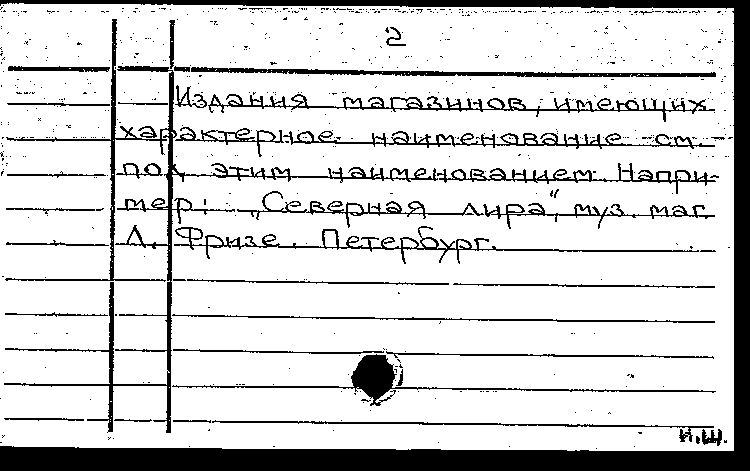 2
Издания магазинов, имеющих
характерное наименование см.
под этим наименованием. Напри-
мер: „Северная лира", муз. маг.
Л. Фризе. Петербург.
И.Ш.